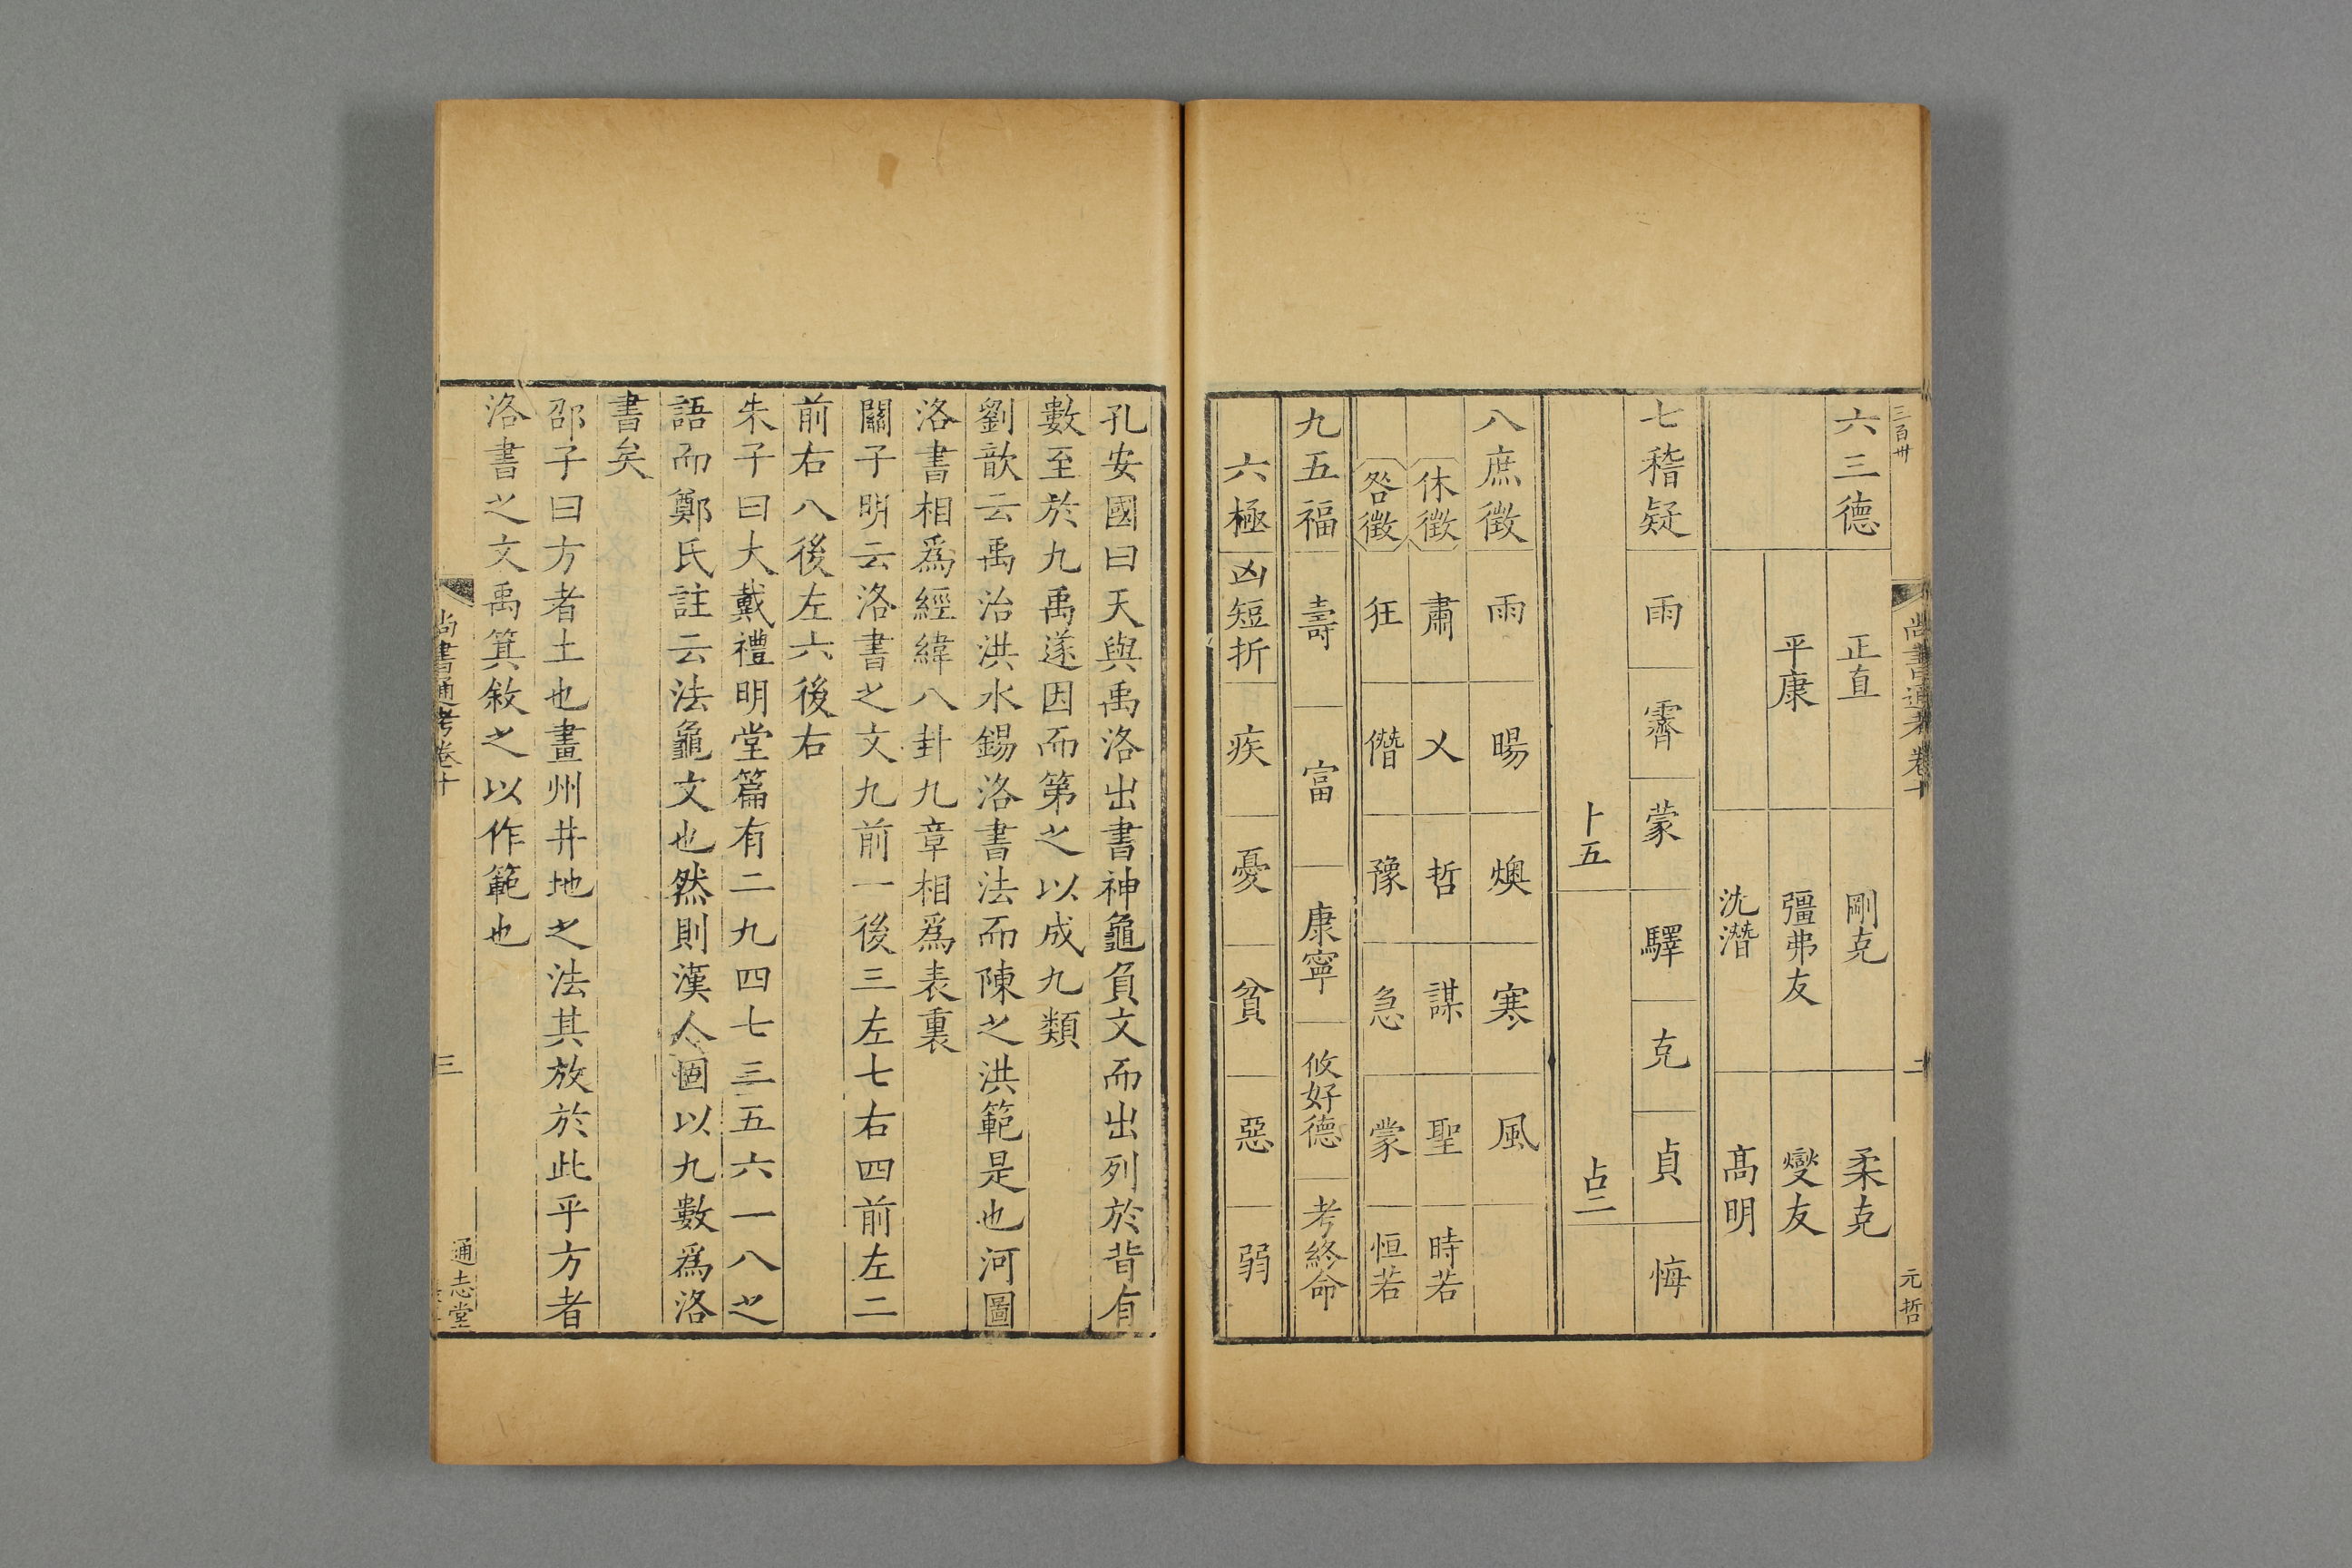 三百卅
尚書通考卷十
二
元哲
六三德 正直 剛克 柔克
平康 彊弗友 燮友
沈潛 高明
七稽疑 雨 霽 蒙 驛 克 貞 悔
卜五 占二
八庶徵 雨 暘 燠 寒 風
休徵 肅 乂 哲 謀 聖 時若
咎徵 狂 僭 豫 急 蒙 恒若
九五福 壽 富 康寧 攸好德 考終命
六極 凶短折 疾 憂 貧 惡 弱
孔安國曰天與禹洛出書神龜負文而出列於背有
數至於九禹遂因而第之以成九類
劉歆云禹治洪水錫洛書法而陳之洪範是也河圖
洛書相爲經緯八卦九章相爲表裏
關子明云洛書之文九前一後三左七右四前左二
前右八後左六後右
朱子曰大戴禮明堂篇有二九四七三五六一八之
語而鄭氏註云法龜文也然則漢人固以九數爲洛
書矣
邵子曰方者土也畫州井地之法其放於此乎方者
洛書之文禹箕敘之以作範也
尚書通考卷十
三
通志堂